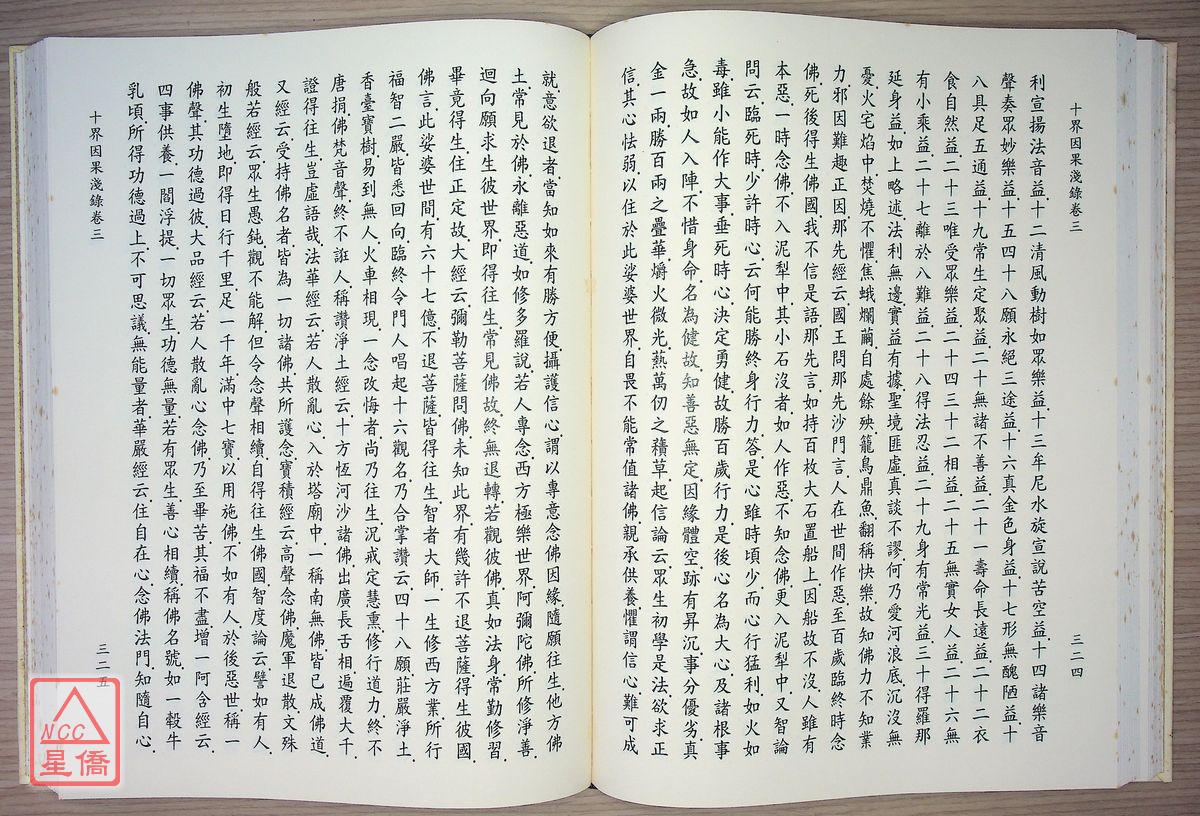 十界因果淺錄卷三
三二四
利宣揚法音益．十二清風動樹如眾樂益．十三牟尼水旋宣說苦空益．十四諸樂音
聲奏眾妙樂益．十五四十八願永絕三途益．十六真金色身益．十七形無醜陋益．十
八具足五通益．十九常生定聚益．二十無諸不善益．二十一壽命長遠益．二十二衣
食自然益．二十三唯受眾樂益．二十四三十二相益．二十五無實女人益．二十六無
有小乘益．二十七離於八難益．二十八得法忍益．二十九身有常光益．三十得羅那
延身益．如上略述．法利無邊．實益有據．聖境匪虛．真談不謬．何乃愛河浪底．沉沒無
憂．火宅焰中．焚燒不懼．焦蛾爛繭．自處餘殃．籠鳥鼎魚．翻稱快樂．故知佛力．不知業
力．邪因難趣正因．那先經云．國王問那先沙門言．人在世間作惡．至百歲臨終時念
佛．死後得生佛國．我不信是語．那先言．如持百枚大石置船上．因船故不沒．人雖有
本惡．一時念佛．不入泥犁中．其小石沒者．如人作惡．不知念佛．更入泥犁中．又智論
問云．臨死時少許時心．云何能勝終身行力．答．是心雖時頃少．而心行猛利．如火如
毒．雖小能作大事．垂死時心．決定勇健．故勝百歲行力．是後心名為大心．及諸根事
急故．如人入陣．不惜身命．名為健．故知善惡無定．因緣體空．跡有昇沉．事分優劣．真
金一兩．勝百兩之疊華．爝火微光．爇萬仞之積草．起信論云．眾生初學是法．欲求正
信．其心怯弱．以住於此娑婆世界．自畏不能常值諸佛．親承供養．懼謂信心難可成
就．意欲退者．當知如來有勝方便．攝護信心．謂以專意念佛因緣．隨願往生他方佛
土．常見於佛．永離惡道．如修多羅說．若人專念西方極樂世界．阿彌陀佛．所修淨善．
迴向願求．生彼世界．即得往生．常見佛故．終無退轉．若觀彼佛真如法身．常勤修習．
畢竟得生．住正定故．大經云．彌勒菩薩問佛．未知此界有幾許不退菩薩．得生彼國．
佛言．此娑婆世間．有六十七億．不退菩薩．皆得往生．智者大師．一生修西方業．所行
福智二嚴．皆悉回向．臨終令門人唱起十六觀名．乃合掌讚云．四十八願．莊嚴淨土．
香臺寶樹．易到無人．火車相現．一念改悔者．尚乃往生．況戒定慧熏．修行道力．終不
唐捐．佛梵音聲．終不誑人．稱讚淨土經云．十方恆河沙諸佛．出廣長舌相．遍覆大千．
證得往生．豈虛語哉．法華經云．若人散亂心．入於塔廟中．一稱南無佛．皆已成佛道．
又經云．受持佛名者．皆為一切諸佛．共所護念．寶積經云．高聲念佛．魔軍退散．文殊
般若經云．眾生愚鈍．觀不能解．但令念聲相續．自得往生佛國．智度論云．譬如有人．
初生墮地．即得日行千里．足一千年．滿中七寶．以用施佛．不如有人．於後惡世．稱一
佛聲．其功德過彼．大品經云．若人散亂心念佛．乃至畢苦．其福不盡．增一阿含經云．
四事供養．一閻浮提．一切眾生．功德無量．若有眾生．善心相續．稱佛名號．如一𤚲牛
乳頃．所得功德過上．不可思議．無能量者．華嚴經云．住自在心．念佛法門．知隨自心．
十界因果淺錄卷三
三二五
NCC
星僑